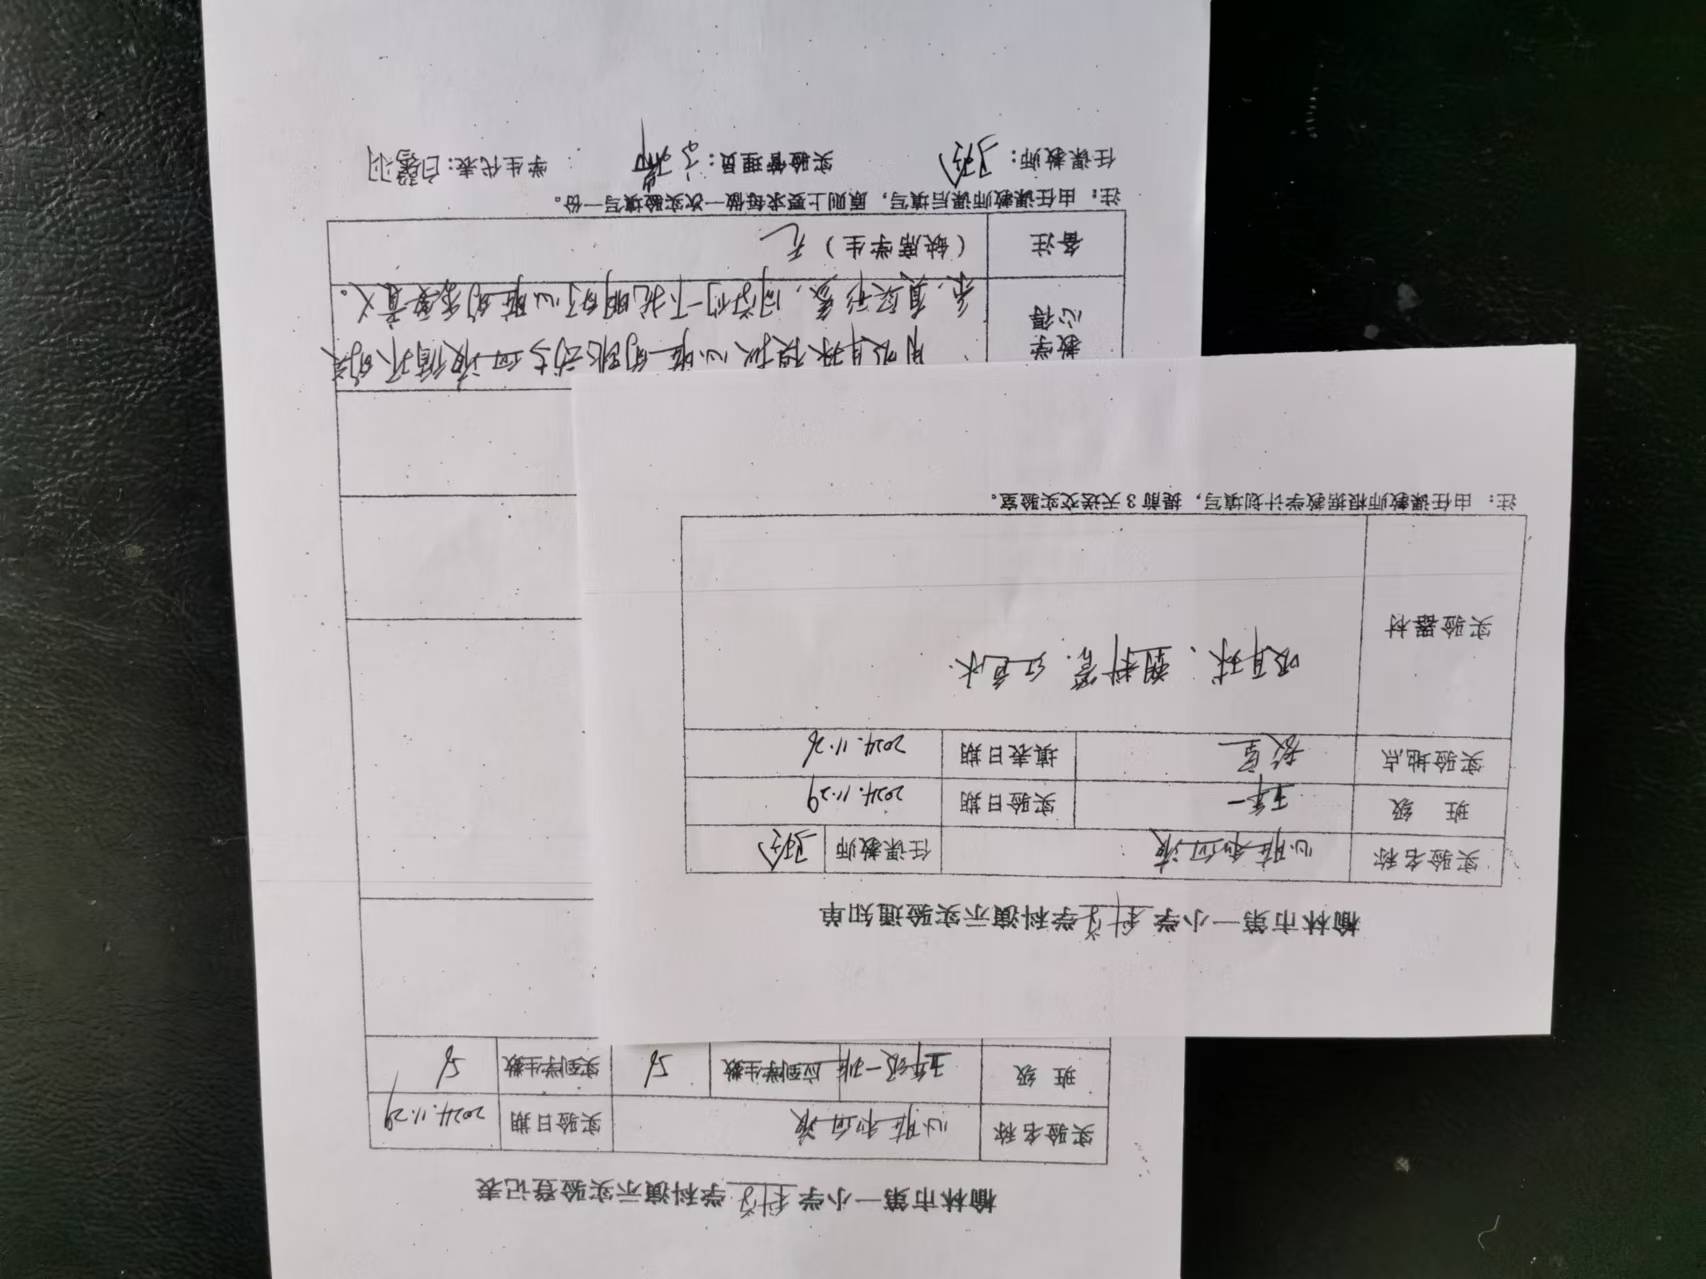 榆林市第一小学科学学科演示实验通知单
实验名称 心脏和血液 任课教师
班 级 五年一 实验日期 2024.11.29
实验地点 教室 填表日期 2024.11.26
实验器材 吸耳球、塑料管、红色水.
注: 由任课教师根据教学计划填写, 提前3天送交实验室。
榆林市第一小学科学学科演示实验登记表
实验名称 心脏和血液 实验日期 2024.11.29
班 级 五年级一班 应到学生数 实到学生数
教学心得 用吸耳球模拟心脏的跳动与血液循环的关
系,直反形象,同学们一下就明白了心脏的重要意义。
备注 (缺席学生) 无
注: 由任课教师课后填写, 原则上要求每做一次实验填写一份。
任课教师: 实验管理员: 学生代表: